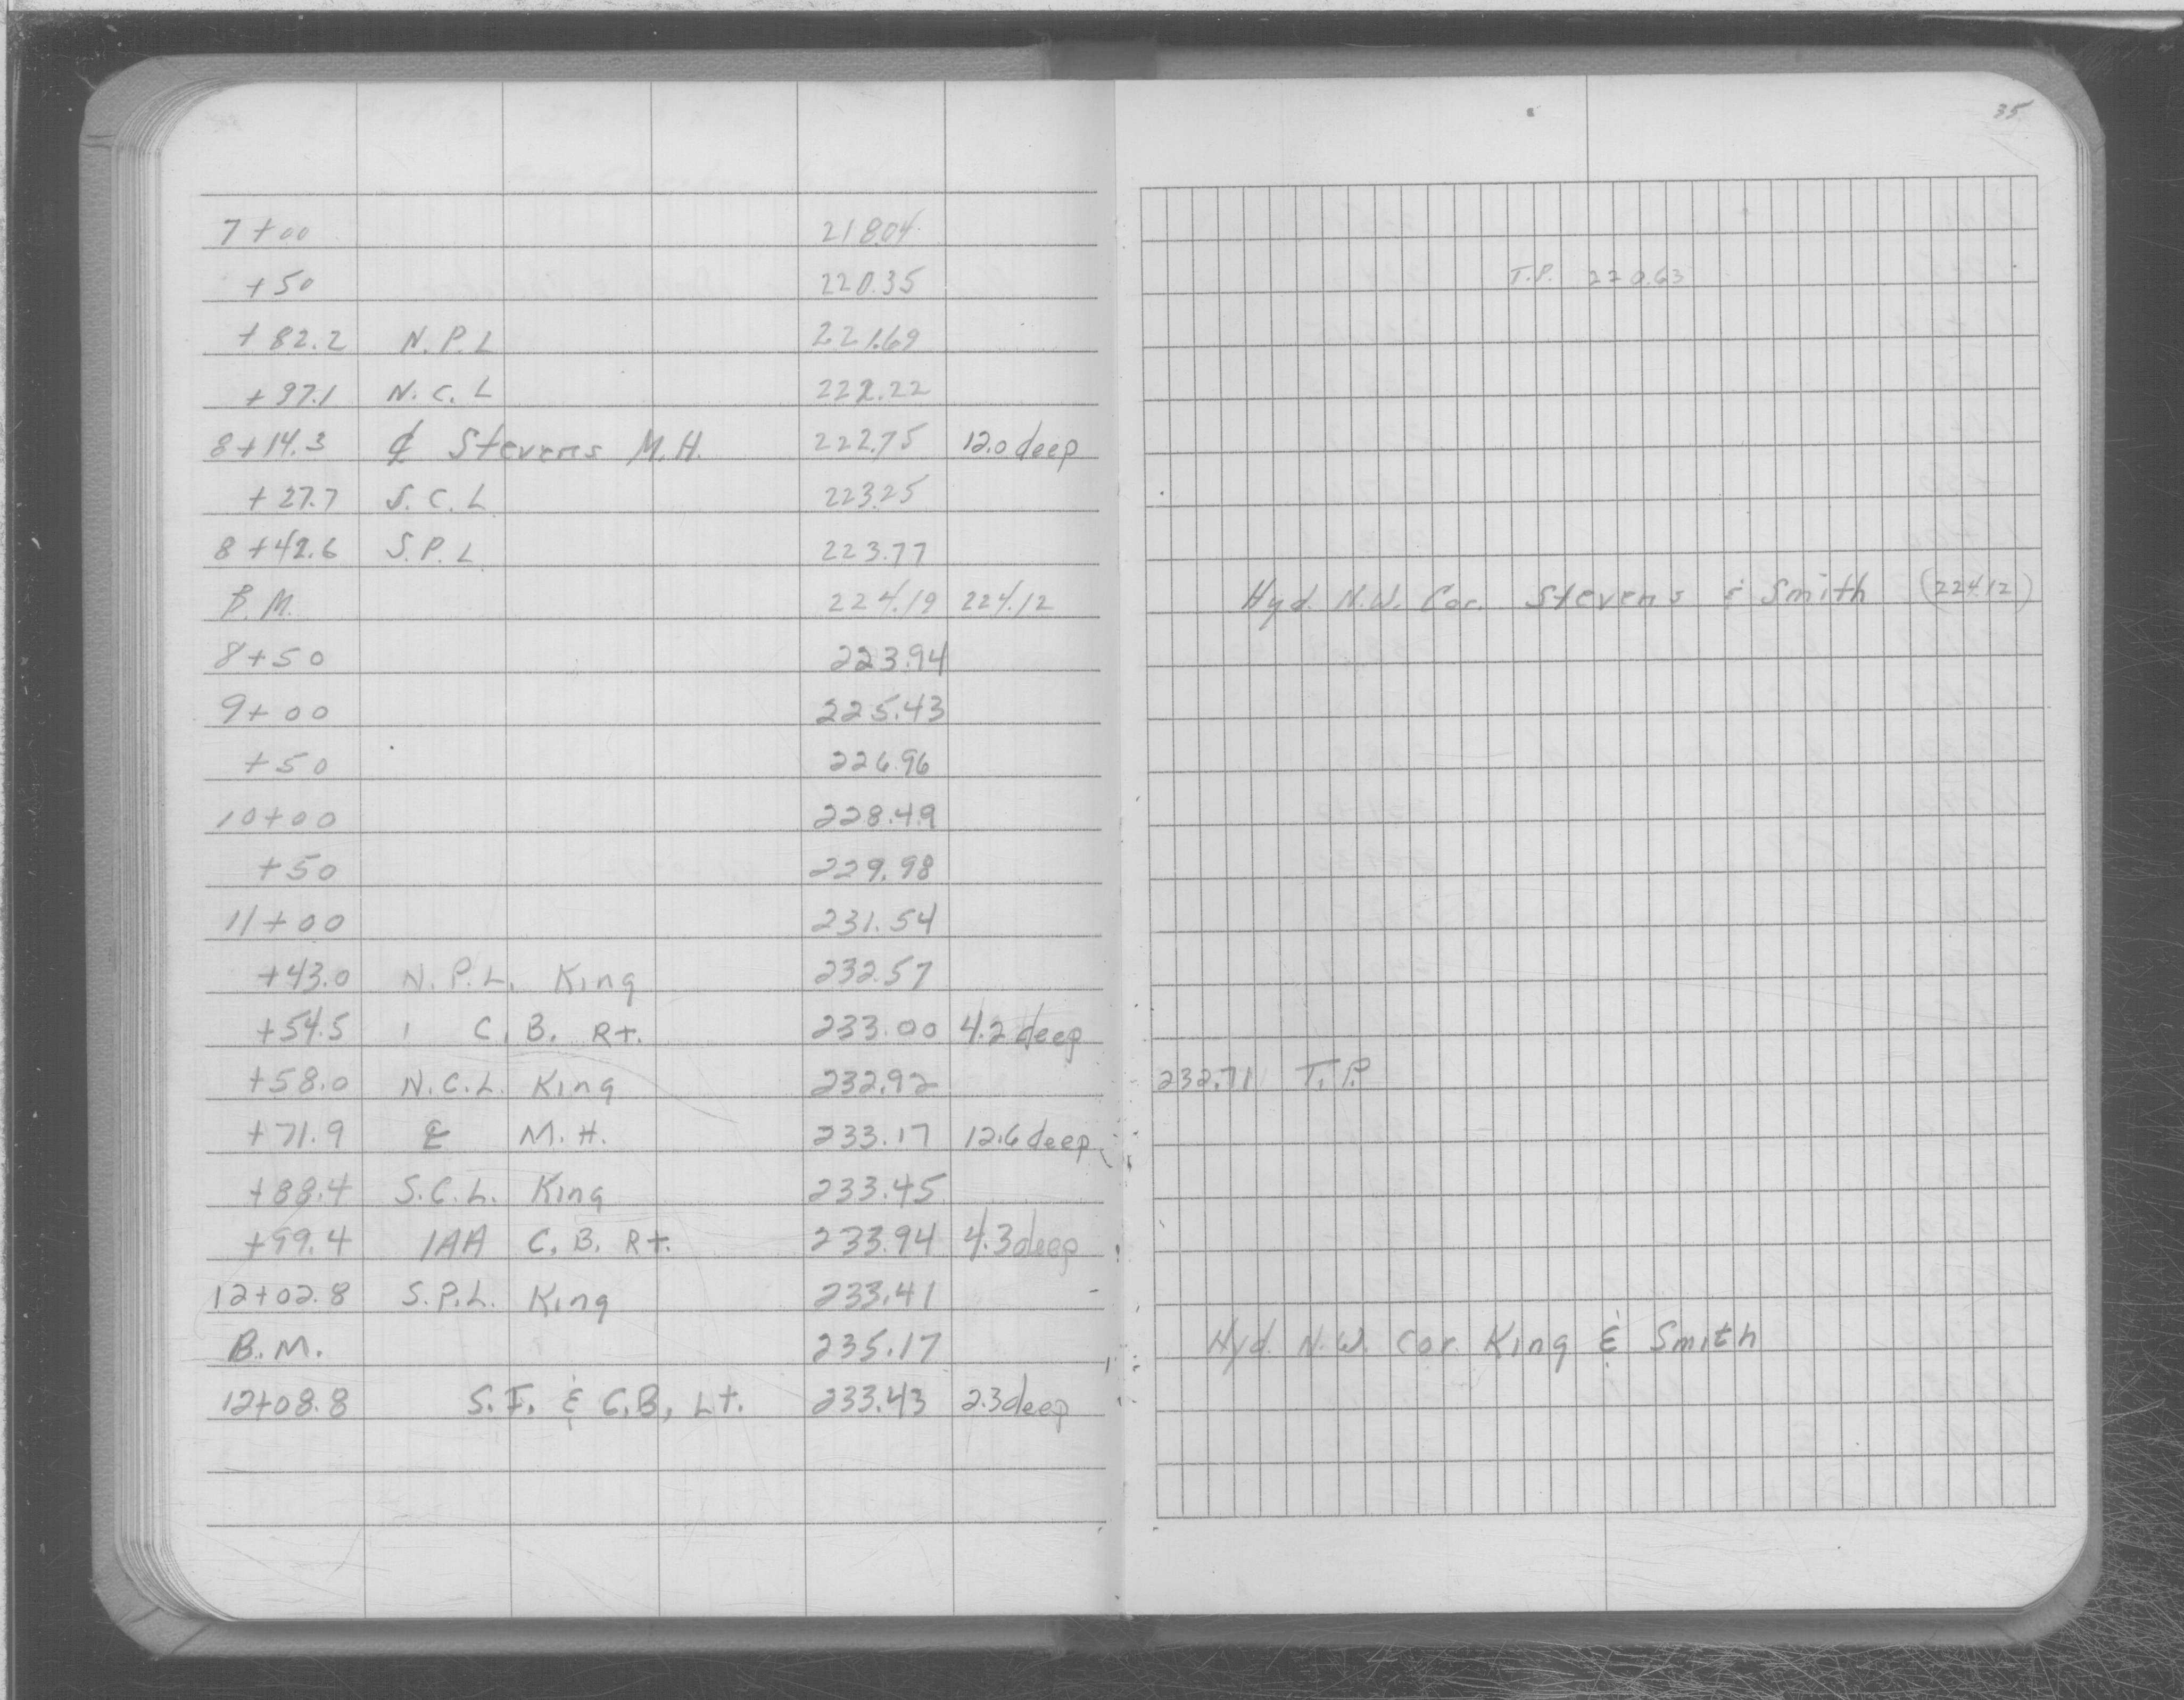 35
7+00 218.04
+50 220.35 T.P. 220.63
+82.2 N.P.L 221.69
+97.1 N.C.L 222.22
8+14.3 ℄ Stevens M.H. 222.75 12.0 deep
+27.7 S.C.L 223.25
8+42.6 S.P.L 223.77
B.M. 224.19 224.12 Hyd. N.W. Cor. Stevens & Smith (224.12)
8+50 223.94
9+00 225.43
+50 226.96
10+00 228.49
+50 229.98
11+00 231.54
+43.0 N.P.L. King 232.57
+54.5 C.B. Rt. 233.00 4.2 deep
+58.0 N.C.L. King 232.92 232.71 T.P.
+71.9 ℄ M.H. 233.17 12.6 deep
+88.4 S.C.L. King 233.45
+99.4 1AA C.B. Rt. 233.94 4.3 deep
12+02.8 S.P.L. King 233.41
B.M. 235.17 Hyd. N.W. Cor. King & Smith
12+08.8 S.I. & C.B, Lt. 233.43 2.3 deep